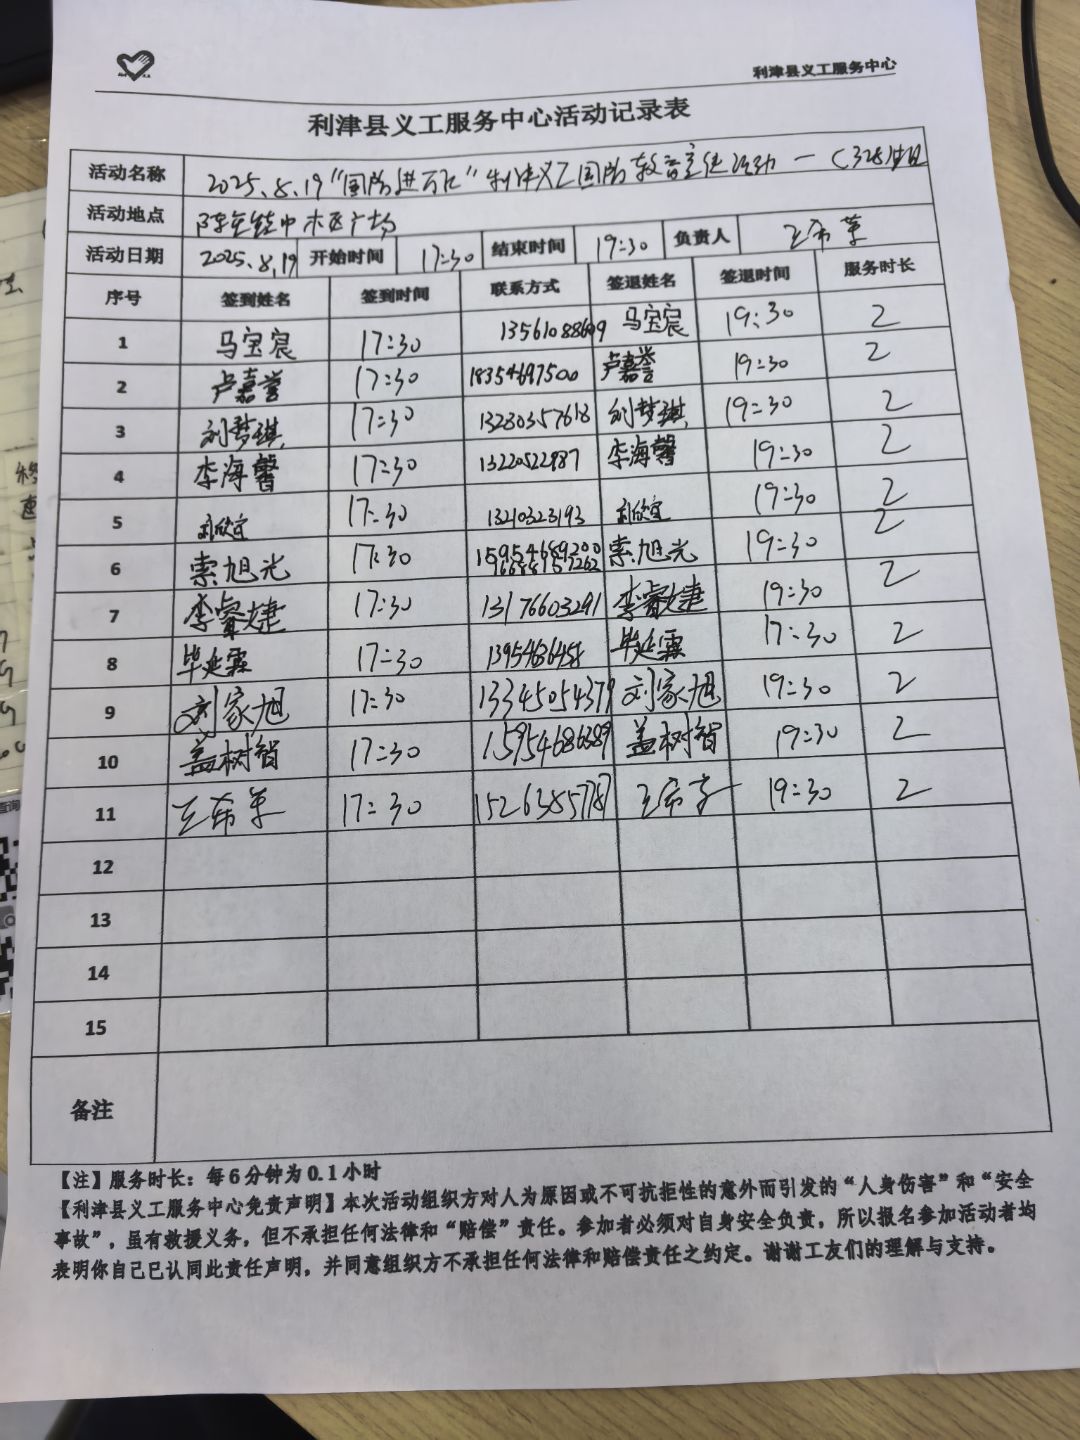 利津县义工服务中心
利津县义工服务中心活动记录表
活动名称 2025.8.19“国防进万家”利津义工国防教育宣传活动一(328)
活动地点 广场
活动日期 2025.8.19 开始时间 17:30 结束时间 19:30 负责人 王希革
序号 签到姓名 签到时间 联系方式 签退姓名 签退时间 服务时长
1 马宝宸 17:30 13561088609 马宝宸 19:30 2
2 卢嘉誉 17:30 18354697500 卢嘉誉 19:30 2
3 刘梦琪 17:30 13280357618 刘梦琪 19:30 2
4 李海馨 17:30 13220522987 李海馨 19:30 2
5 刘欣宜 17:30 13210323193 刘欣宜 19:30 2
6 索旭光 17:30 索旭光 19:30 2
7 李睿婕 17:30 13176603291 李睿婕 19:30 2
8 毕延霖 17:30 毕延霖 17:30 2
9 刘家旭 17:30 13345054379 刘家旭 19:30 2
10 盖树智 17:30 15954686389 盖树智 19:30 2
11 王希革 17:30 15263857787 王希革 19:30 2
12
13
14
15
备注
【注】服务时长：每6分钟为0.1小时
【利津县义工服务中心免责声明】本次活动组织方对人为原因或不可抗拒性的意外而引发的“人身伤害”和“安全
事故”，虽有救援义务，但不承担任何法律和“赔偿”责任。参加者必须对自身安全负责，所以报名参加活动者均
表明你自己已认同此责任声明，并同意组织方不承担任何法律和赔偿责任之约定。谢谢工友们的理解与支持。